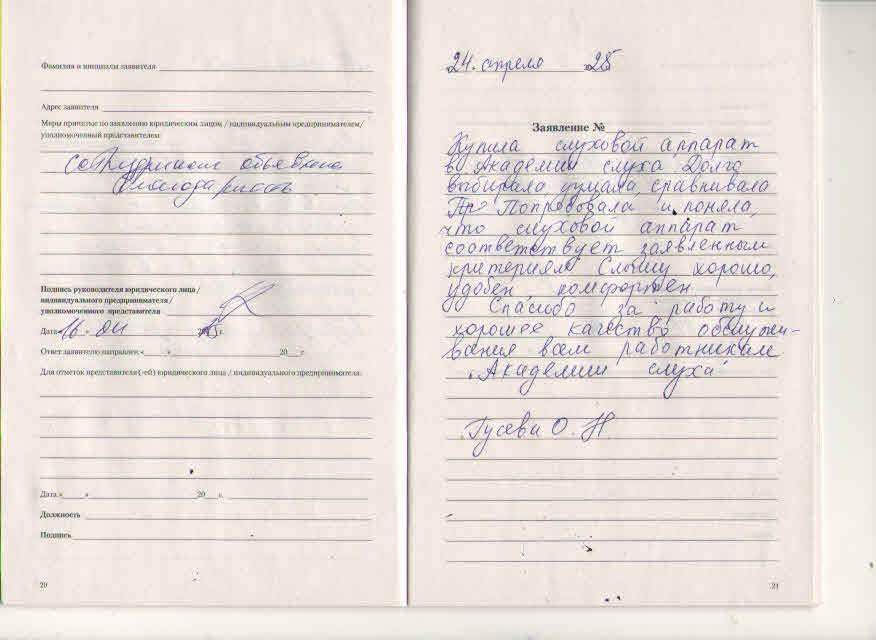 Фамилия и инициалы заявителя
Адрес заявителя
Меры принятые по заявлению юридическим лицом / индивидуальным предпринимателем/
уполномоченный представителем:
сотрудникам объявлена
благодарность
Подпись руководителя юридического лица /
индивидуального предпринимателя /
уполномоченного представителя
Дата «16» 04 20 г.
Ответ заявителю направлен: « » 20 г.
Для отметок представителя(-ей) юридического лица / индивидуального предпринимателя:
Дата « » 20 г.
Должность
Подпись
20
24. апреля 25
Заявление №
Купила слуховой аппарат
в "Академии слуха". Долго
выбирала, думала, сравнивала
Пр Попробовала и поняла,
что слуховой аппарат
соответствует заявленным
критериям. Слышу хорошо,
удобен, комфортен.
Спасибо за работу и
хорошее качество обслужи-
вания всем работникам
"Академии слуха"
Гусева О. Н.
21